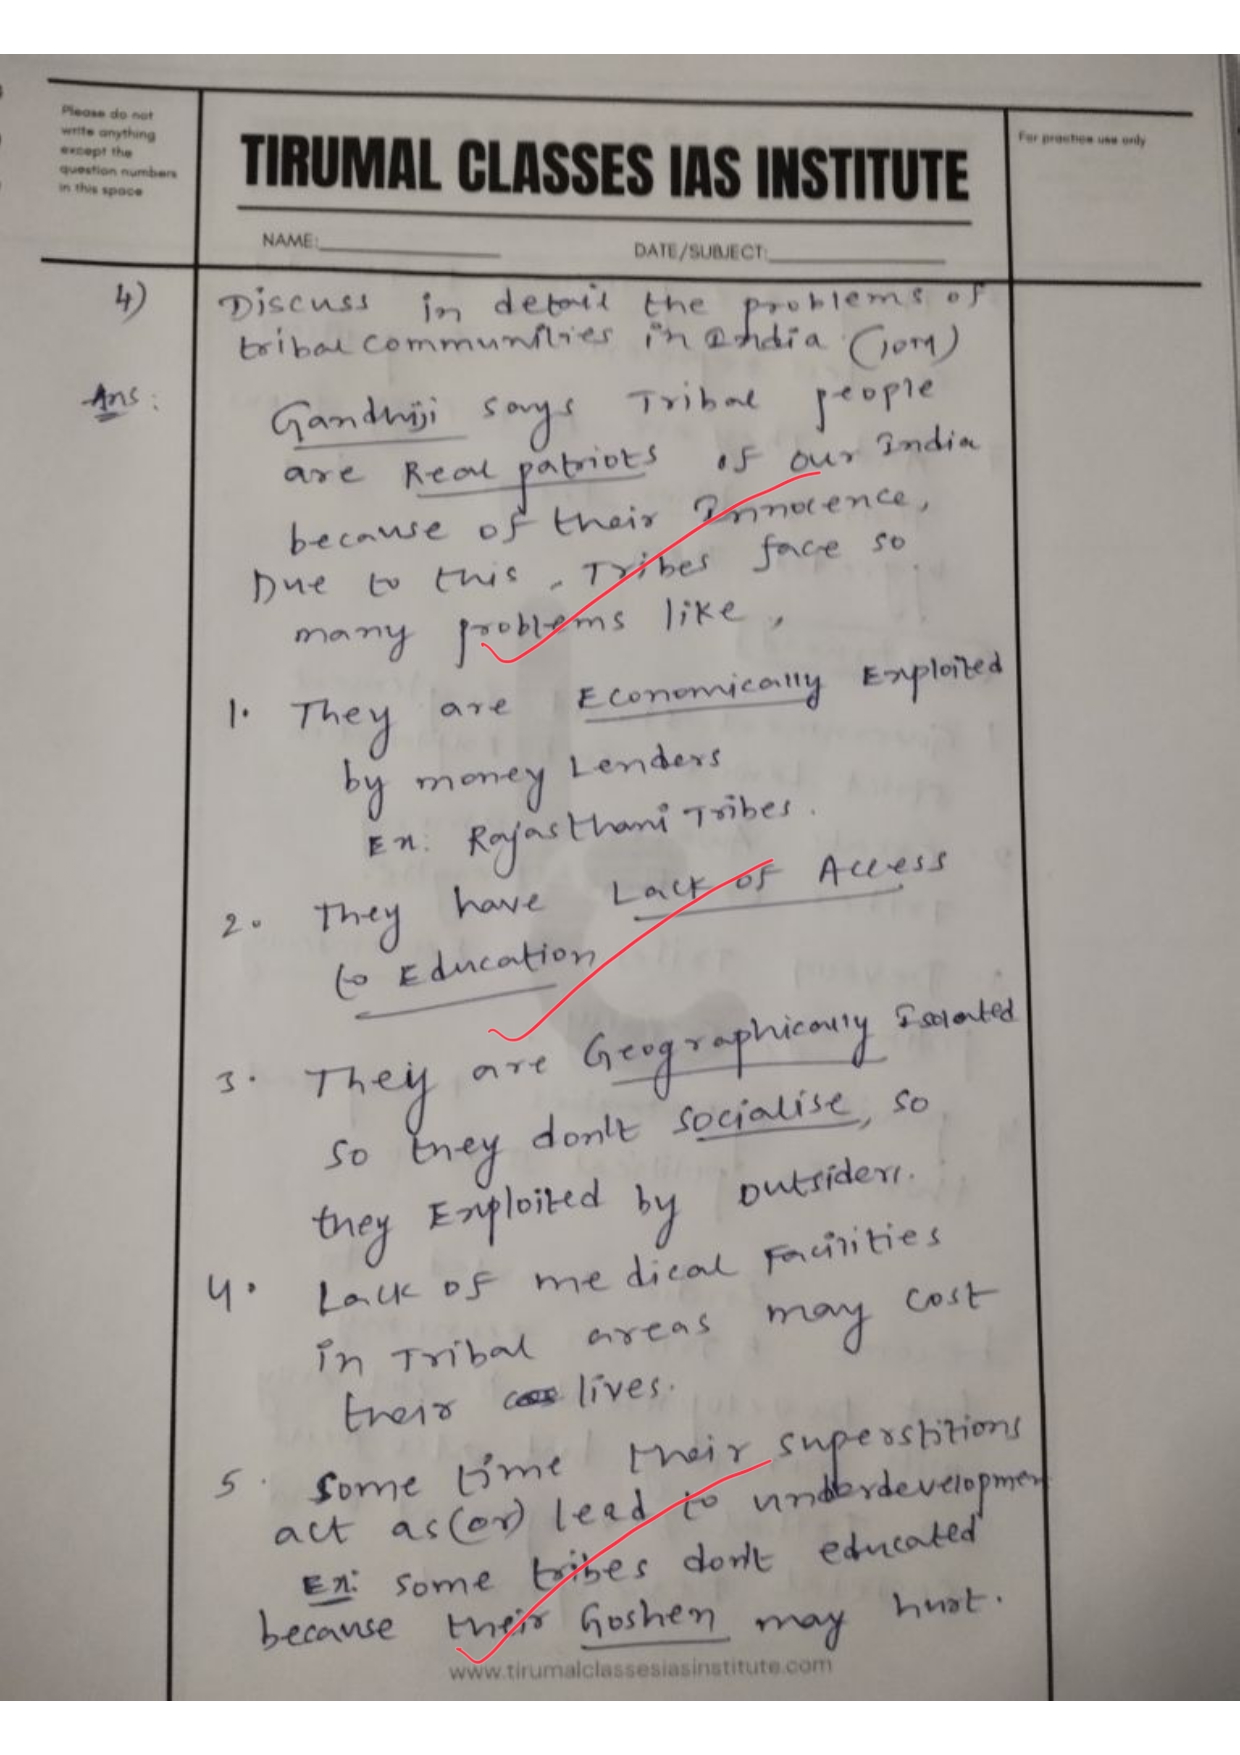 Please do not
write anything
except the
question numbers
in this space
TIRUMAL CLASSES IAS INSTITUTE
For practice use only
NAME:
DATE/SUBJECT:
4) Discuss in detail the problems of
tribal communities in India (10M)
Ans: Gandhiji says Tribal people
are Real patriots of our India
because of their Innocence,
Due to this, Tribes face so
many problems like,
1. They are Economically Exploited
by money Lenders
Ex: Rajasthani Tribes.
2. They have Lack of Access
to Education
3. They are Geographically Isolated
so they don't socialise, so
they Exploited by outsiders.
4. Lack of medical Facilities
in Tribal areas may cost
their lives.
5. Some time their superstitions
act as (or) lead to underdevelopment
Ex: some tribes don't educated
because their Goshen may hurt.
www.tirumalclassesiasinstitute.com